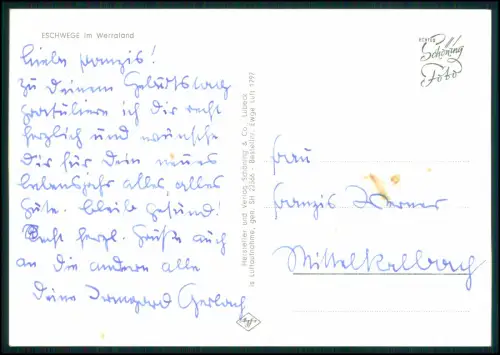 ESCHWEGE im Werraland
Liebe Franzis!
Zu Deinem Geburtstag
gratuliere ich Dir recht
herzlich und wünsche
Dir für Dein neues
Lebensjahr alles, alles
Gute. Bleib gesund!
Recht herzl. Grüße auch
an die andern alle
Deine Irmgard Gerlach
Hersteller und Verlag Schöning & Co., Lübeck
Luftaufnahme, gen. SH
Bestellnr. Ewge Luft 1797
ECHTES
Schöning
Foto
Frau
Franzis Werner
Mittelkalbach
Agfa